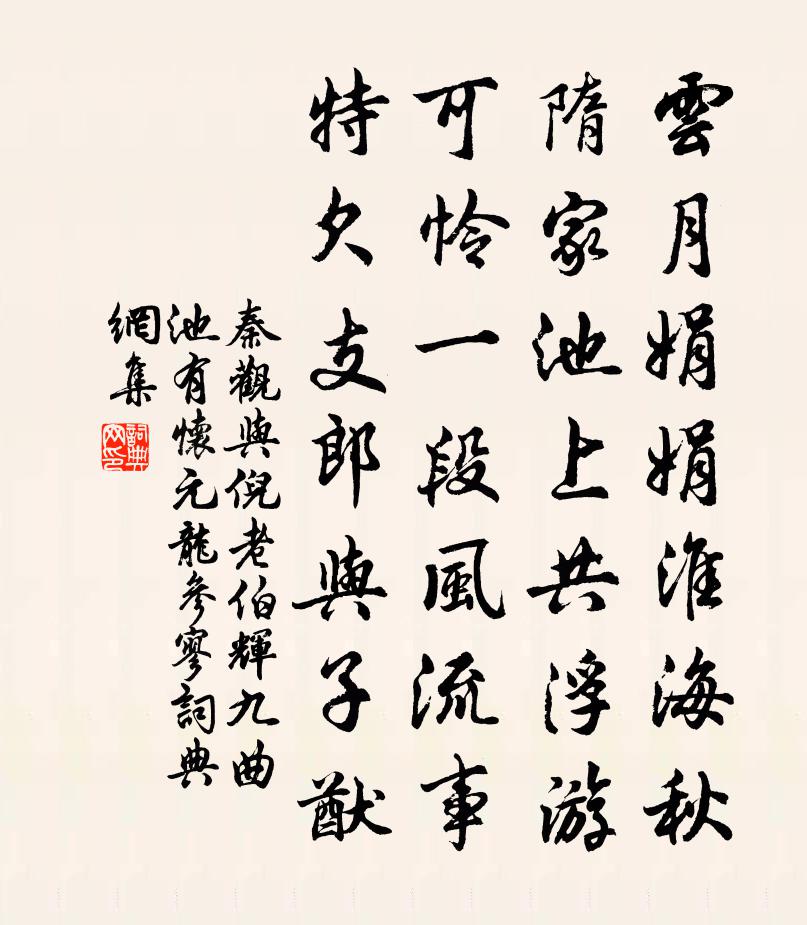 雲月娟娟淮海秋
隋家池上共浮游
可怜一段風流事
特欠支郎與子猷
秦觀與倪老伯輝九曲
池有懷元龍參寥詞典
網集
詞典
网印